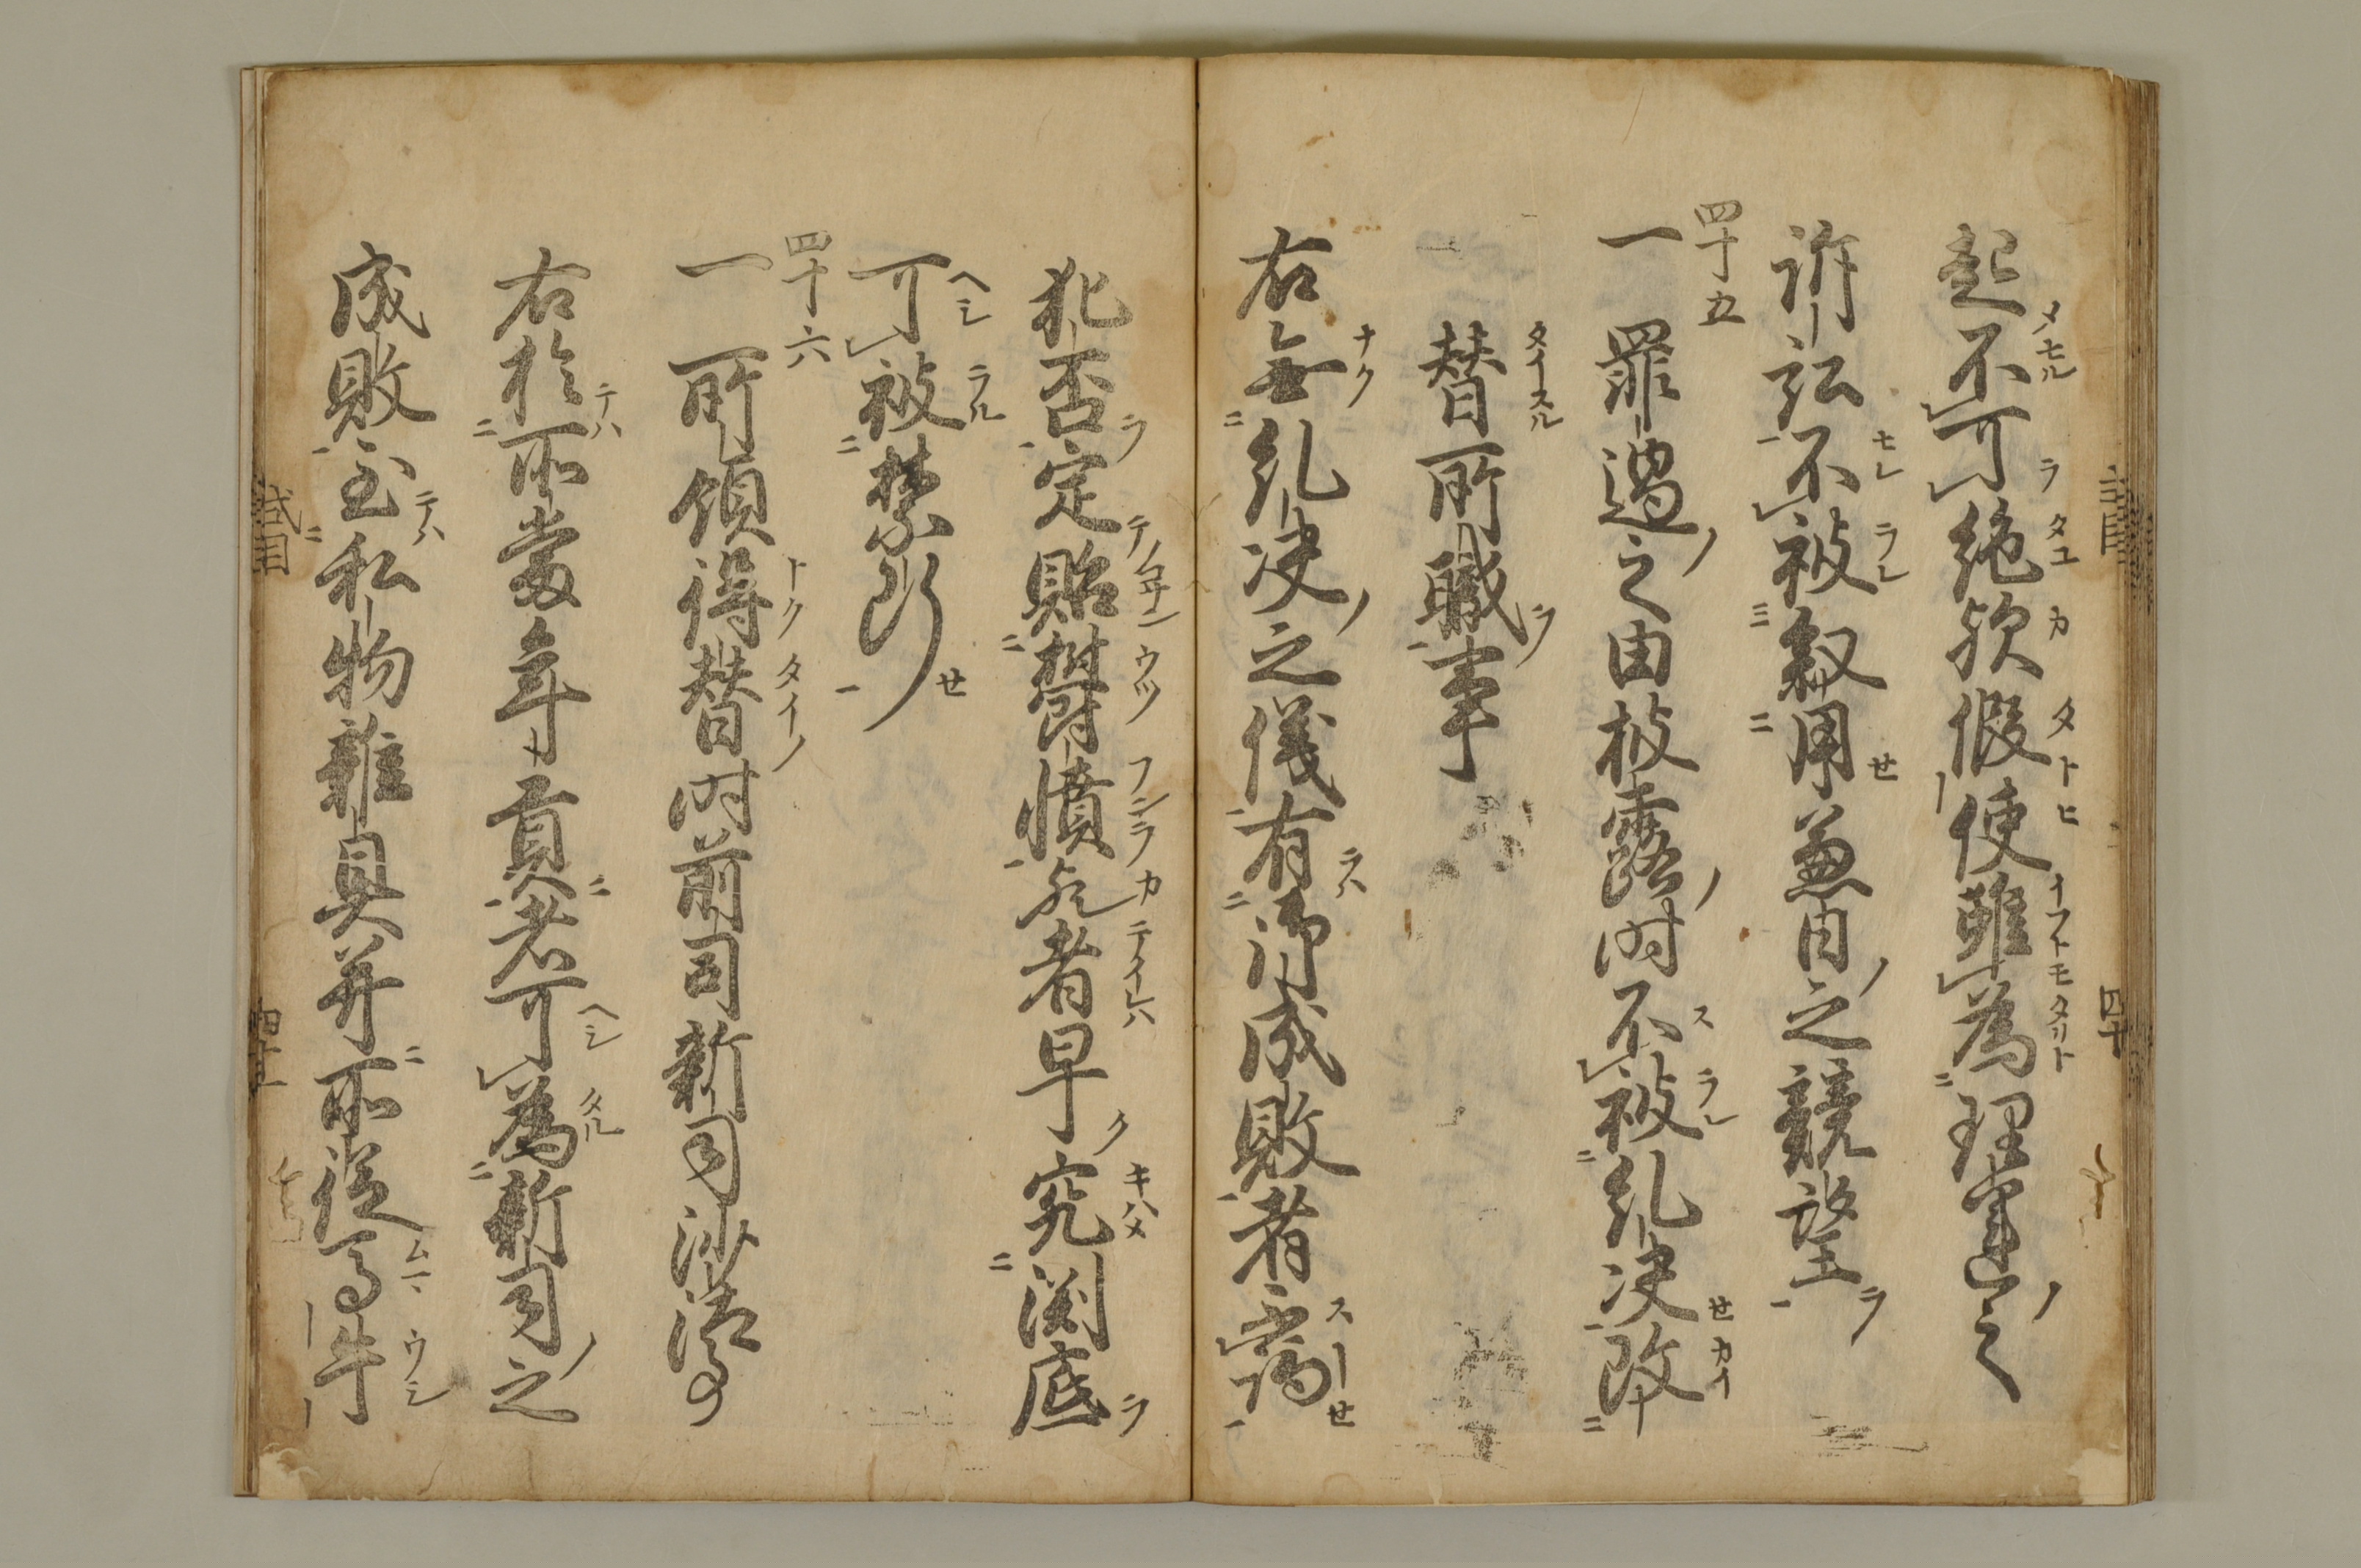 起不可絶歟假使雖為理運之
訴訟不被叙用兼日之競望
四十五
一 罪過之由披露時不被糺決改
替所職事
右無糺決之儀有御成敗者不論
犯否定貽欝憤歟者早究渕底
可被禁断
四十六
一 所領得替時前司新司沙汰事
右於所當年貢者可為新司之
成敗至私物雜具并所從馬牛
式目